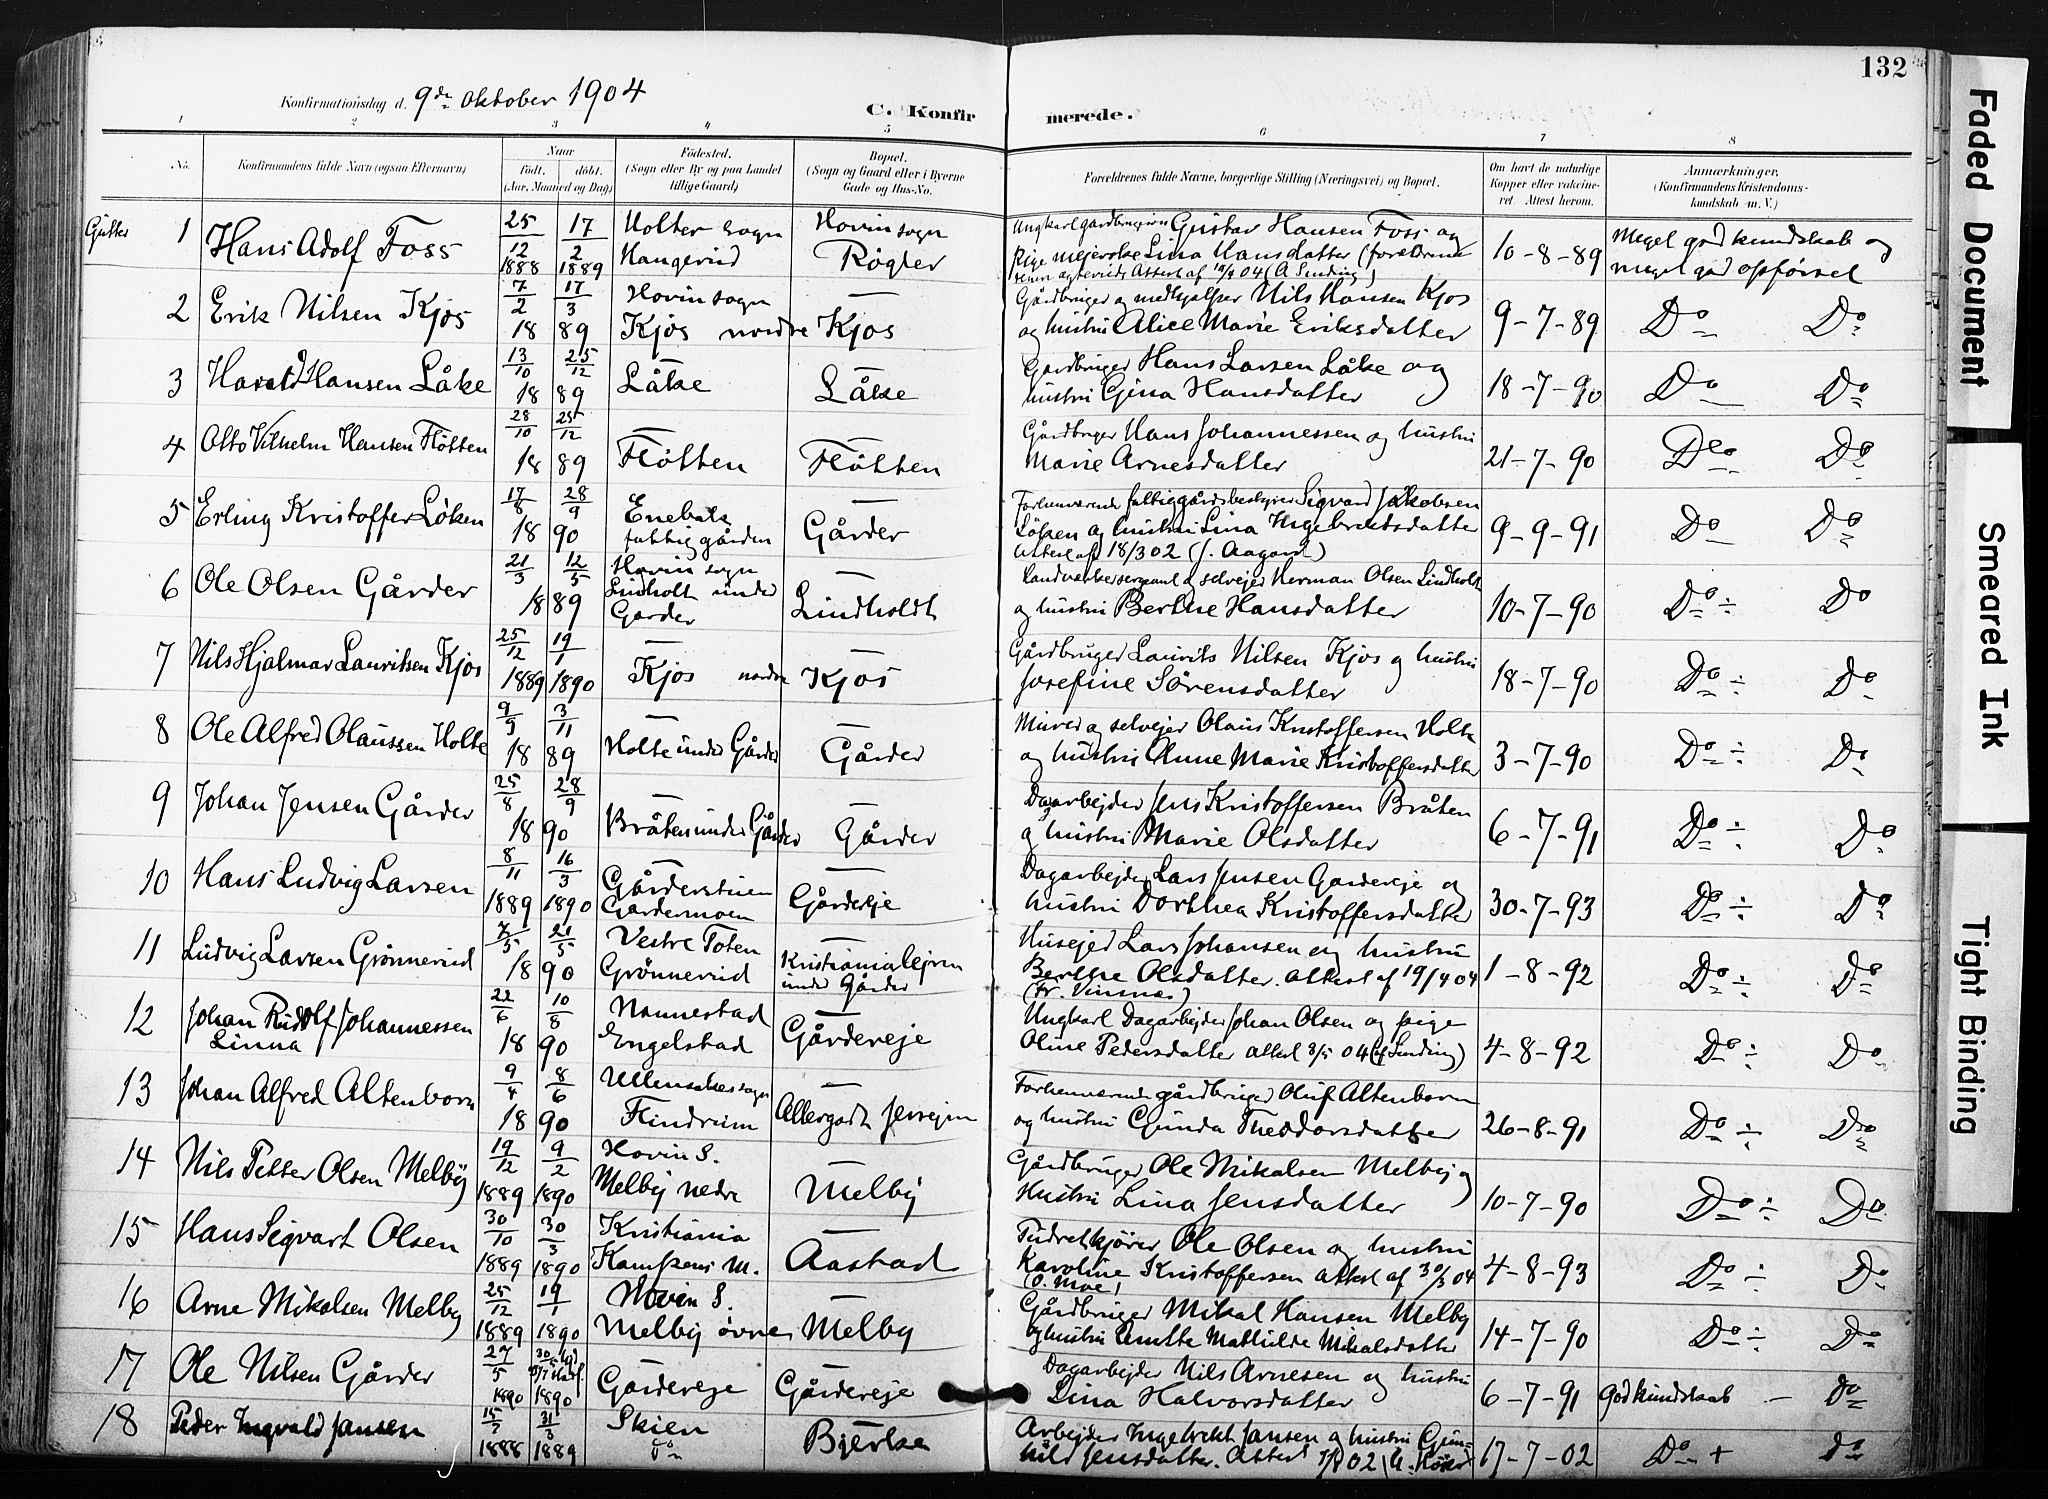 132
Konfirmationsdag d. 9de oktober 1904
C. Konfirmerede.
1 2 3 4 5 6 7 8
No. Konfirmandens fulde Navn (ogsaa Efternavn) Naar født. døbt. (Aar, Maaned og Dag) Fødested. (Sogn eller By og paa Landet tillige Gaard) Bopæl. (Sogn og Gaard eller i Byerne Gade og Hus-No. Forældrenes fulde Navne, borgerlige Stilling (Næringsvei) og Bopæl. Om havt de naturlige Kopper eller vakcineret. Attest herom. Anmærkninger. (Konfirmandens Kristendomskundskab m. V.)
Gutter
1 Hans Adolf Foss 25/12 1888 17/2 1889 Holter sogn Haugerud Hovin sogn Røgler Ungkarl gardbrugersøn Gustav Hansen Foss og pige mejerske Lina Hansdatter Attest af (A. Sending) 10-8-89 Meget god kundskab og meget god opførsel
2 Erik Nilsen Kjos 7/2 17/3 1889 Hovin sogn Kjos nordre — Kjos Gårdbruger og medhjælper Nils Hansen Kjos og hustru Alice Marie Eriksdatter 9-7-89 Do Do
3 Harald Hansen Låke 13/10 25/12 1889 — Låke — Låke Gardbruger Hans Larsen Låke og hustru Gina Hansdatter 18-7-90 Do Do
4 Otto Vilhelm Hansen Flötten 28/10 25/12 1889 — Flötten — Flötten Gårdbruger Hans Johannessen og hustru Marie Arnesdatter 21-7-90 Do Do
5 Erling Kristoffer Löken 17/8 28/9 1890 Enebak fattiggården — Gårder Forhenværende fattiggårdsbestyrer Sigvard Jakobsen Löken og hustru Lina Ingebretsdatter Attest af 18/3 02 (J. Aagard) 9-9-91 Do Do
6 Ole Olsen Gårder 21/3 12/5 1889 Hovin sogn Lindholt under Garder — Lindholdt Landværkersergeant og selvejer Herman Olsen Lindholt og hustru Berthe Hansdatter 10-7-90 Do ÷ Do
7 Nils Hjalmar Lauritsen Kjos 25/12 1889 19/1 1890 — Kjos nordre — Kjos Gårdbruger Laurits Nilsen Kjos og hustru Josefine Sörensdatter 18-7-90 Do ÷ Do
8 Ole Alfred Olaussen Holte 9/9 3/11 1889 — Holte under Gårder — Gårder Murer og selvejer Olaus Kristoffersen Holte og hustru Anne Marie Kristoffersdatter 3-7-90 Do ÷ Do
9 Johan Jensen Gårder 25/8 28/9 1890 — Bråten under Gårder — Gårder Dagarbejder Jens Kristoffersen Bråten og hustru Marie Olsdatter 6-7-91 Do ÷ Do
10 Hans Ludvig Larsen 8/11 1889 16/3 1890 — Gårderstuen Gardermoen — Gårdereje Dagarbejder Lars Jensen Gardereje og hustru Dorthea Kristoffersdatter 30-7-93 Do ÷ Do
11 Ludvig Larsen Grönnerud 7/5 21/5 1890 Vestre Toten Grönnerud — Kristianialejren under Gårder Husejer Lars Johansen og hustru Berthe Olsdatter. attest af 19/4 04 (Fr. Vinsnes) 1-8-92 Do ÷ Do
12 Johan Rudolf Johannessen Linna 22/6 10/8 1890 Nannestad Engelstad — Gårdereje Ungkarl Dagarbejder Johan Olsen og pige Oline Pedersdatter attest 3/5 04 (A Sending) 4-8-92 Do ÷ Do
13 Johan Alfred Altenborn 9/4 8/6 1890 Ullensakersogn Flindrum — Allergodt Jessejm Forhenværende gårdbruger Oluf Altenborn og hustru Gunda Theodorsdatter 26-8-91 Do ÷ Do
14 Nils Petter Olsen Melby 19/12 1889 9/2 1890 Hovin S. Melby nedre — Melby Gårdbruger Ole Mikalsen Melby og Hustru Lina Jensdatter 10-7-90 Do ÷ Do
15 Hans Sigvart Olsen 30/10 1889 30/3 1890 Kristiania Kampens M. — Aastad Pudretkjörer Ole Olsen og hustru Karoline Kristoffersen attest af 30/3 04 (O. Moe) 4-8-93 Do ÷ Do
16 Arne Mikalsen Melby 25/12 1889 19/1 1890 Hovin S. Melby övre — Melby Gårdbruger Mikal Hansen Melby og hustru Anette Mathilde Mikalsdatter 14-7-90 Do ÷ Do
17 Ole Nilsen Gårder 27/5 1890 1890 — Gårdereje — Gårdereje Dagarbejder Nils Arnesen og hustru Lina Halvorsdatter 6-7-91 God kundskab — Do
18 Peder Ingvald Jansen 1888 31/3 1889 Skien do — Bjerke Arbejder Ingebrekt Jansen og hustru Gunhild Jensdatter. Attest 02 17-7-02 Do + Do
Faded Document
Smeared Ink
Tight Binding